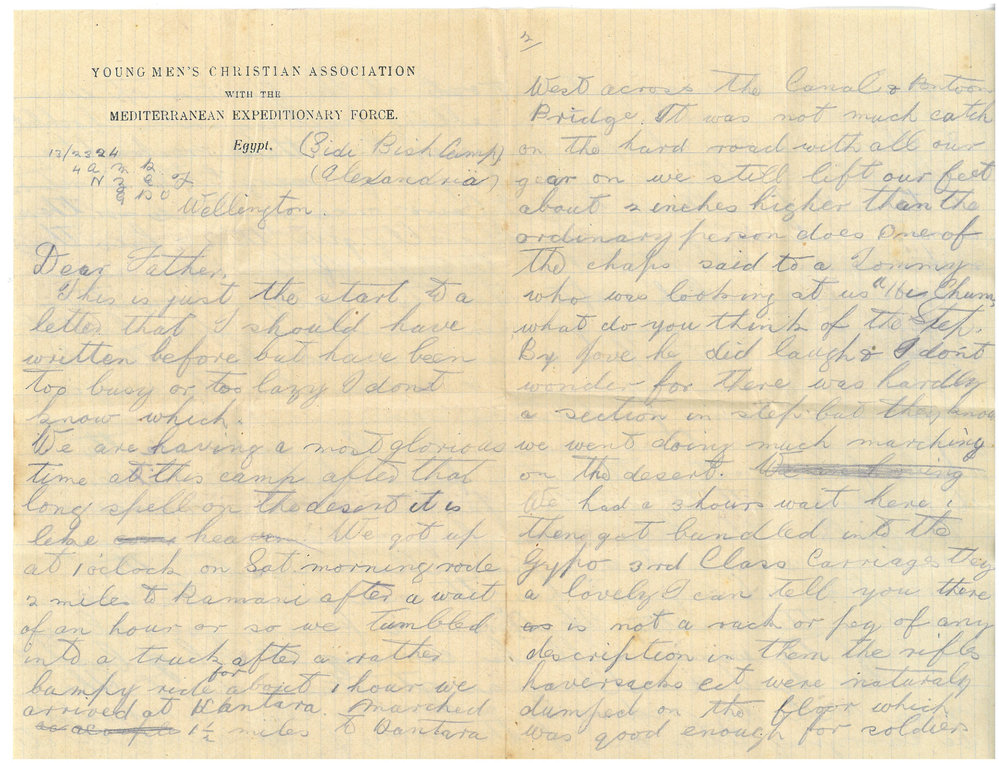 YOUNG MEN'S CHRISTIAN ASSOCIATION
WITH THE
MEDITERRANEAN EXPEDITIONARY FORCE.
Egypt, (Sidi Bish Camp)
(Alexandria)
13/2324
4 A M R
N Z E F
Wellington.
Dear Father,
This is just the start to a
letter that I should have
written before but have been
too busy or too lazy I dont
know which.
We are having a most glorious
time at this camp after that
long spell on the desert it is
like heaven. We got up
at 1 oclock on Sat morning rode
2 miles to Ramani after a wait
of an hour or so we tumbled
into a truck after a rather
bumpy ride for about 1 hour we
arrived at Kantara. Marched
1½ miles to Kantara
2/
West across the Canal & Pontoon
Bridge. It was not much catch
on the hard road with all our
gear on we still lift our feet
about 2 inches higher than the
ordinary person does One of
the chaps said to a Tommy
who was looking at us "Hi Chum,
what do you think of the Step.
By Jove he did laugh & I dont
wonder for there was hardly
a section in step but they know
we went doing much marching
on the desert.
We had a 3 hours wait here &
then got bundled into the
Gypo 3rd Class Carriages they
a lovely I can tell you there
is not a rack or peg of any
description in them the rifles
haversacks ect were naturaly
dumped on the floor which
was good enough for soldiers